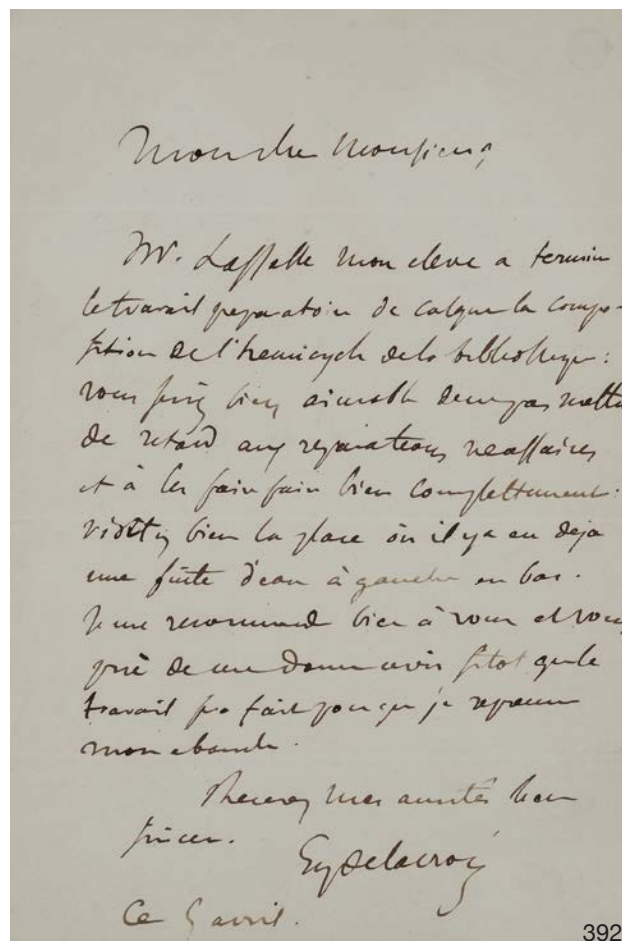 Mon cher Monsieur,
Mr. Lassalle mon eleve a termin
le travail preparatoire de calquer la compo-
sition de l'hemicycle de la bibliotheque :
vous seriez bien aimable de ne pas mettre
de retard aux reparations necessaires
et à les faire faire bien complettement :
visitez bien la place où il y a eu deja
une fuite d'eau à gauche en bas.
Je me recommande bien à vous et vous
prie de me donner avis sitot que le
travail sera fait pour que je reprenne
mon ebauche.
Recevez mes amitiés bien
sinceres.
Eug Delacroix
Ce 5 avril.
392